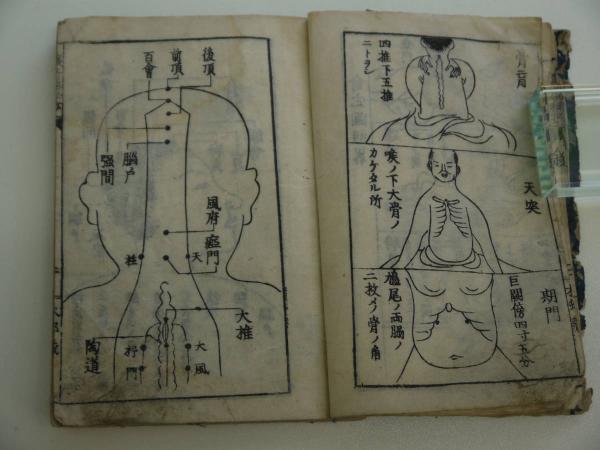 膏肓
四推下五推
ニトヲシ
天突
喉ノ下大骨ノ
カケタル所
期門
巨闕傍四寸五分
鳩尾ノ両脇ノ
二枚メノ骨ノ角
後頂
前頂
百會
腦戸
强間
風府
瘂門
天
柱
大推
陶道
大
風
門